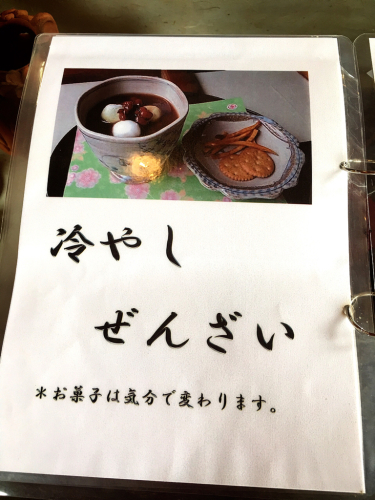 冷やし
ぜんざい
*お菓子は気分で変わります。